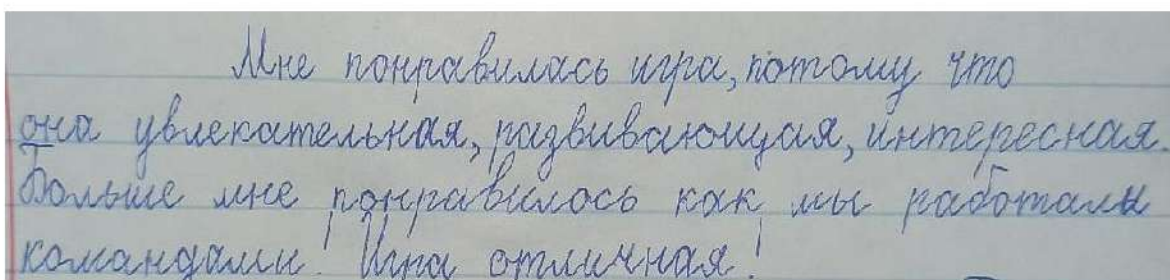 Мне понравилась игра, потому что
она увлекательная, развивающая, интересная.
Больше мне понравилось как мы работали
командами! Игра отличная!